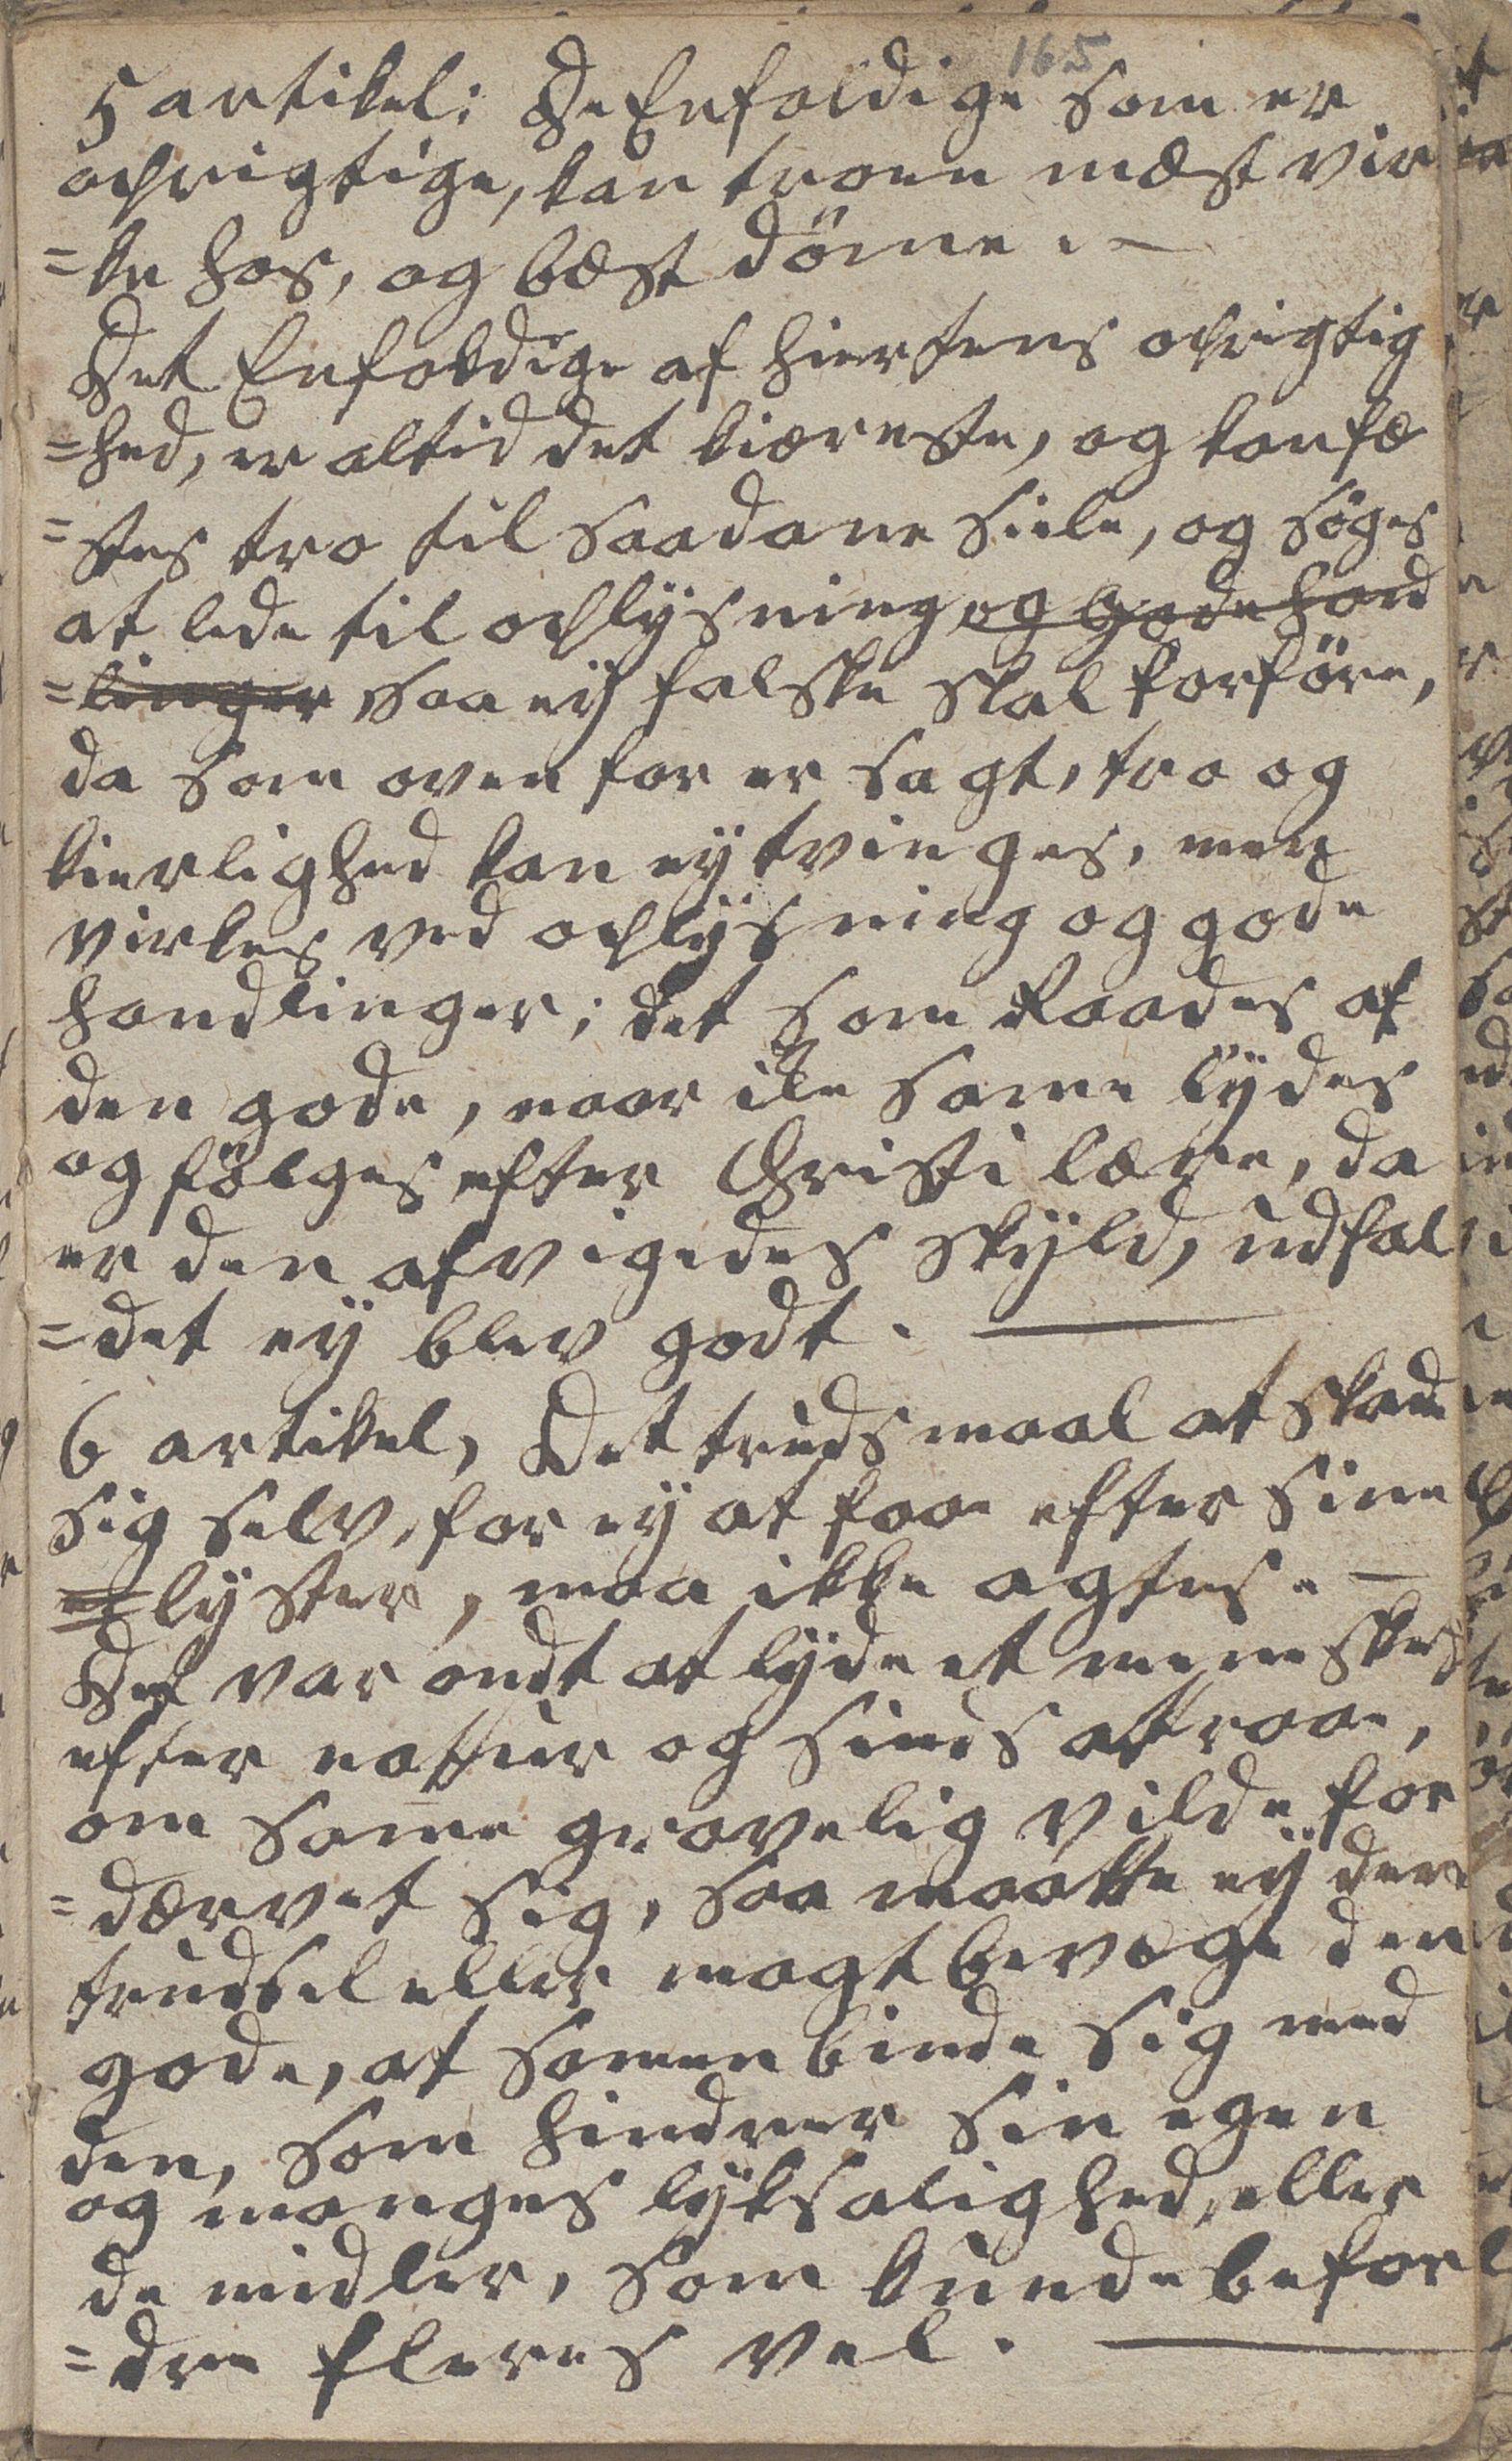 165
5 artikel: De Enfoldige som er
oprigtige, kan troen mæst vir
=ke hos, og bæst döme. —
Det Enfoldige af hiertens oprigtig
=hed, er altid det kiæreste, og kan fæ
=stes tro til saadane Siele, og söges
at lede til oplysning og gode hand
=linger saa ey falske skal forföre,
da som oven for er sagt, tro og
kierlighed kan ey tvinges, men
virkes ved oplysning og gode
handlinger; det som Raades af
den gode, naar ile same lydes
og fölges efter Christi lære, da
er den afvigedes skyld, udfal
=det ey blev godt. —
6 artikel, Det truds maal at skade
sig selv, for ey at faae efter sine
lyster, maa ikke agtes. —
Det var ondt at lyde et meneskes
efter nattur og sinds attraae,
om same gravelig vilde for
=dærvet sig, saa maatte ey den
trudsel eller magt bevæge den
gode, at samenbinde sig med
den, som hindrer sin egen
og manges lyksalighed, eller
de midler, som kunde befor
=dre fleres vel. —